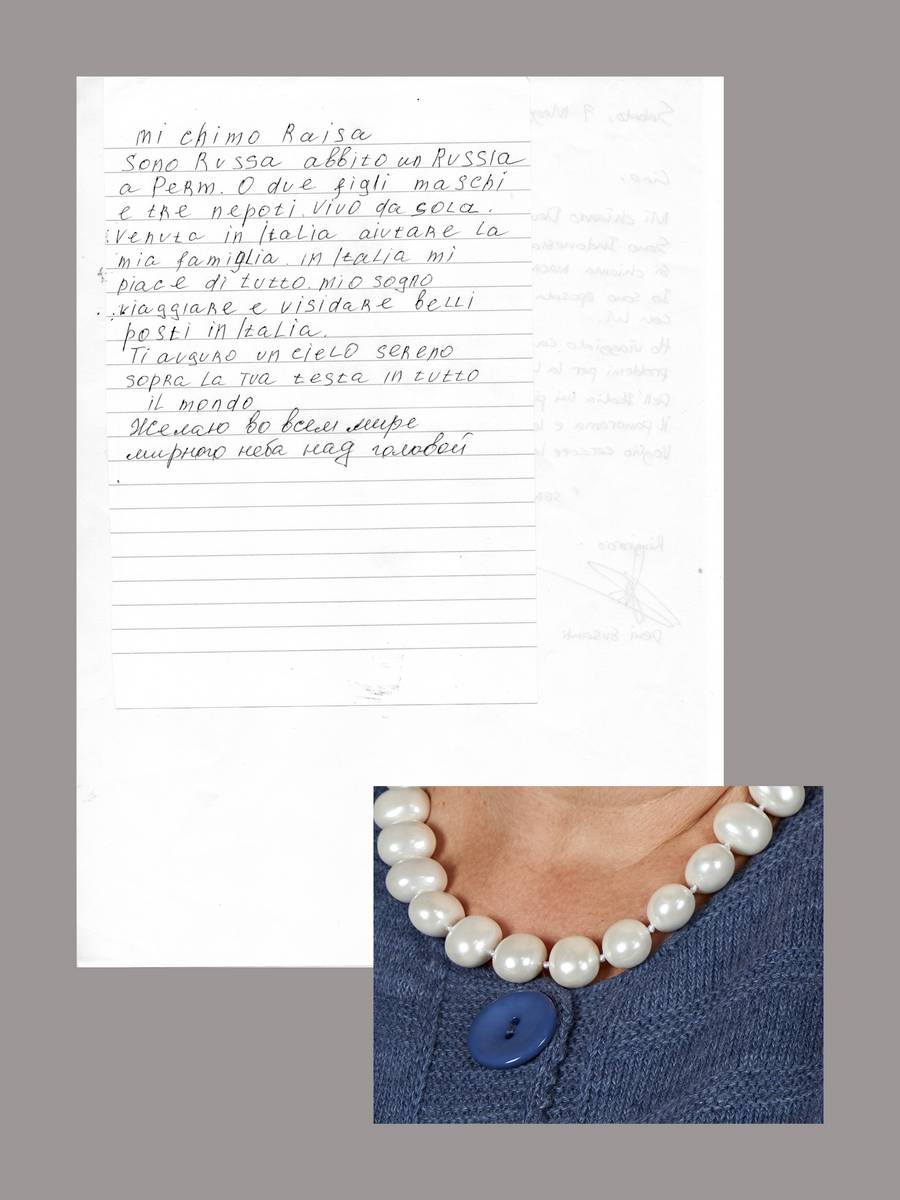 mi chimo Raisa
Sono Russa abbito un Russia
a Perm. O due figli maschi
e tre nepoti. vivo da sola.
venuta in Italia aiutare la
mia famiglia. in Italia mi
piace di tutto. mio sogno
viaggiare e visidare belli
posti in Italia.
Ti auguro un cielo sereno
sopra la tua testa in tutto
il mondo
Желаю во всем мире
мирного неба над головой
Mi chiamo
Sono Indonesia
Io sono
Ho viaggiato
problemi per la
il panorama e
Ringrazio